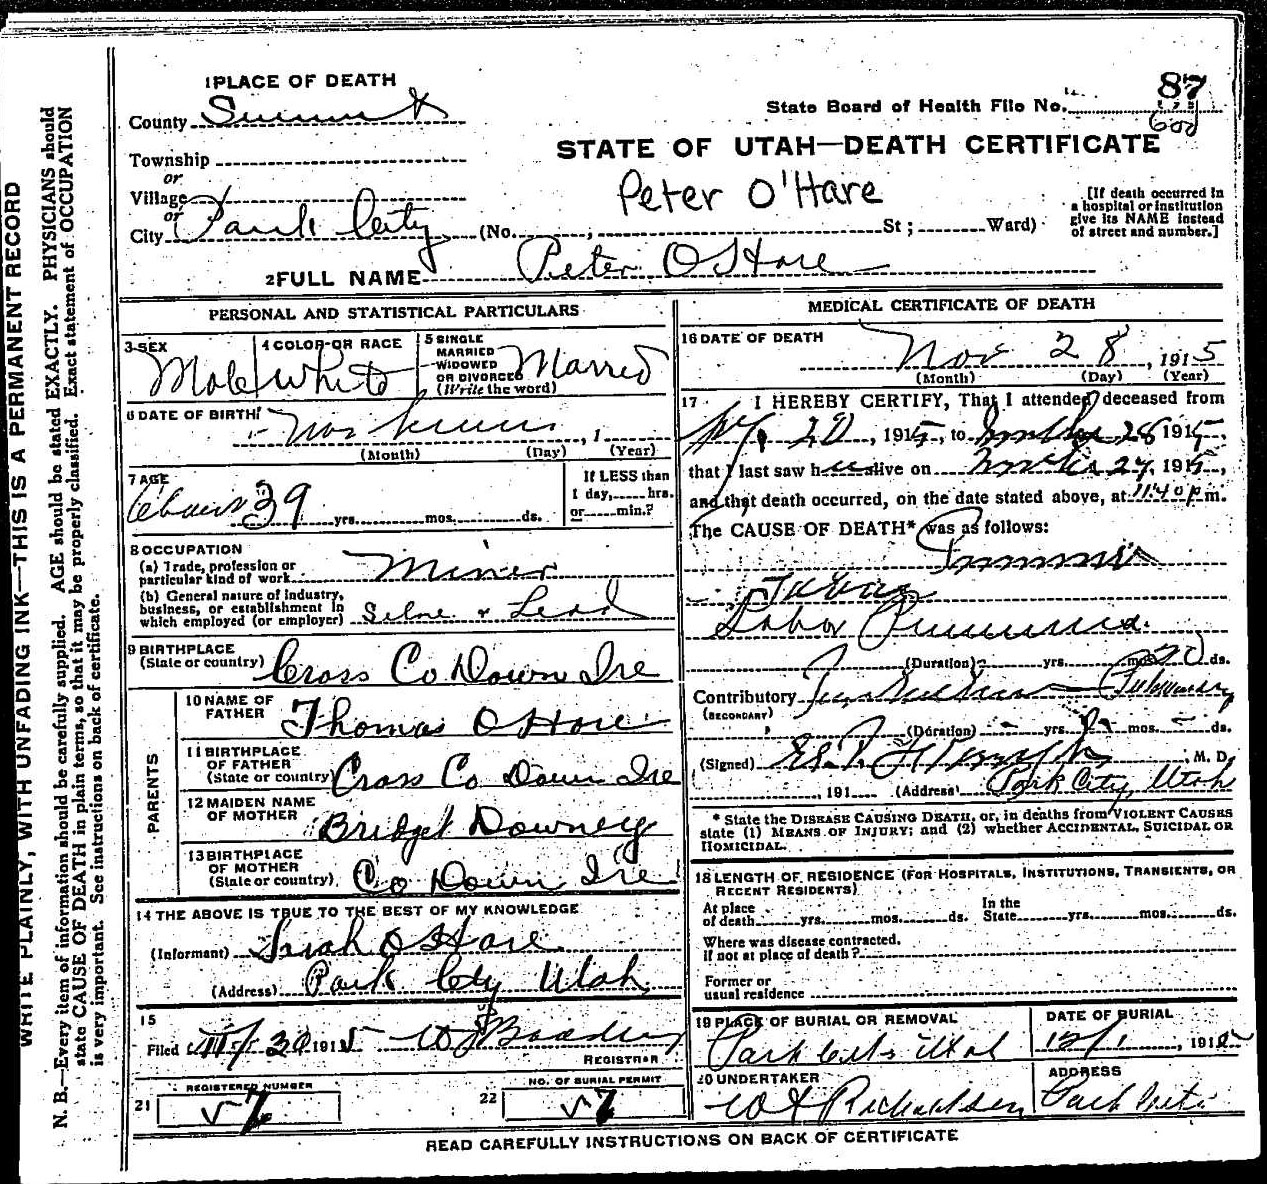 WRITE PLAINLY, WITH UNFADING INK—THIS IS A PERMANENT RECORD
N. B.—Every item of information should be carefully supplied. AGE should be stated EXACTLY. PHYSICIANS should
state CAUSE OF DEATH in plain terms, so that it may be properly classified. Exact statement of OCCUPATION
is very important. See instructions on back of certificate.
1 PLACE OF DEATH
87
State Board of Health File No.
County Summit
STATE OF UTAH—DEATH CERTIFICATE
Township
or
Village
or
City Park City (No. ; St ; Ward)
Peter O'Hare
[If death occurred in
a hospital or institution
give its NAME instead
of street and number.]
2 FULL NAME Peter O'Hare
PERSONAL AND STATISTICAL PARTICULARS
3 SEX
Male
4 COLOR OR RACE
White
5 SINGLE
MARRIED
WIDOWED
OR DIVORCED
(Write the word)
Married
6 DATE OF BIRTH
Not known , 1
(Month) (Day) (Year)
7 AGE
About 39 yrs. mos. ds.
If LESS than
1 day, hrs.
or min.?
8 OCCUPATION
(a) Trade, profession or
particular kind of work Miner
(b) General nature of industry,
business, or establishment in
which employed (or employer) Silver & Lead
9 BIRTHPLACE
(State or country) Cross Co Down Ire
PARENTS
10 NAME OF
FATHER Thomas O'Hare
11 BIRTHPLACE
OF FATHER
(State or country) Cross Co Down Ire
12 MAIDEN NAME
OF MOTHER Bridget Downey
13 BIRTHPLACE
OF MOTHER
(State or country) Co Down Ire
14 THE ABOVE IS TRUE TO THE BEST OF MY KNOWLEDGE
(Informant) Sarah O'Hare
(Address) Park City Utah
15
Filed 30 1915
REGISTRAR
REGISTERED NUMBER
21
NO. OF BURIAL PERMIT
22
MEDICAL CERTIFICATE OF DEATH
16 DATE OF DEATH
Nov 28, 1915
(Month) (Day) (Year)
17 I HEREBY CERTIFY, That I attended deceased from
20, 1915, to 28 1915,
that I last saw h alive on 27, 1915,
and that death occurred, on the date stated above, at 11:40 p m.
The CAUSE OF DEATH* was as follows:
Lobar Pneumonia
(Duration) yrs. mos. ds.
Contributory Pulmonary
(SECONDARY)
(Duration) yrs. mos. ds.
(Signed) , M. D.
, 191 (Address) Park City, Utah
* State the DISEASE CAUSING DEATH, or, in deaths from VIOLENT CAUSES
state (1) MEANS OF INJURY; and (2) whether ACCIDENTAL, SUICIDAL OR
HOMICIDAL.
18 LENGTH OF RESIDENCE (FOR HOSPITALS, INSTITUTIONS, TRANSIENTS, OR
RECENT RESIDENTS)
At place
of death yrs. mos. ds.
In the
State yrs. mos. ds.
Where was disease contracted,
if not at place of death?
Former or
usual residence
19 PLACE OF BURIAL OR REMOVAL
Park City Utah
DATE OF BURIAL
12/1, 1915
20 UNDERTAKER
Richardson
ADDRESS
Park City
READ CAREFULLY INSTRUCTIONS ON BACK OF CERTIFICATE